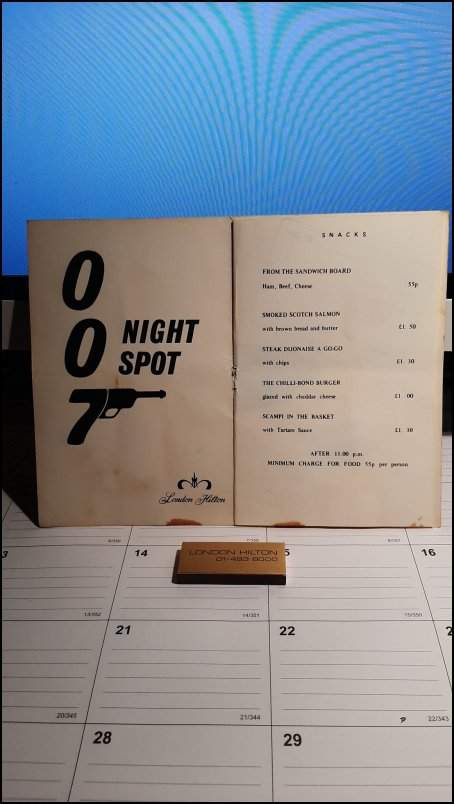 0
0
7
NIGHT
SPOT
London Hilton
SNACKS
FROM THE SANDWICH BOARD
Ham, Beef, Cheese 55p
SMOKED SCOTCH SALMON
with brown bread and butter £1 50
STEAK DIJONAISE A GO-GO
with chips £1 30
THE CHILLI-BOND BURGER
glazed with cheddar cheese £1 00
SCAMPI IN THE BASKET
with Tartare Sauce £1 30
AFTER 11.00 p.m.
MINIMUM CHARGE FOR FOOD 55p per person
LONDON HILTON
01-493-8000
6/359 7/358 8/357
3 14 5 16
13/352 14/351 15/350
21 22
20/345 21/344 22/343
28 29